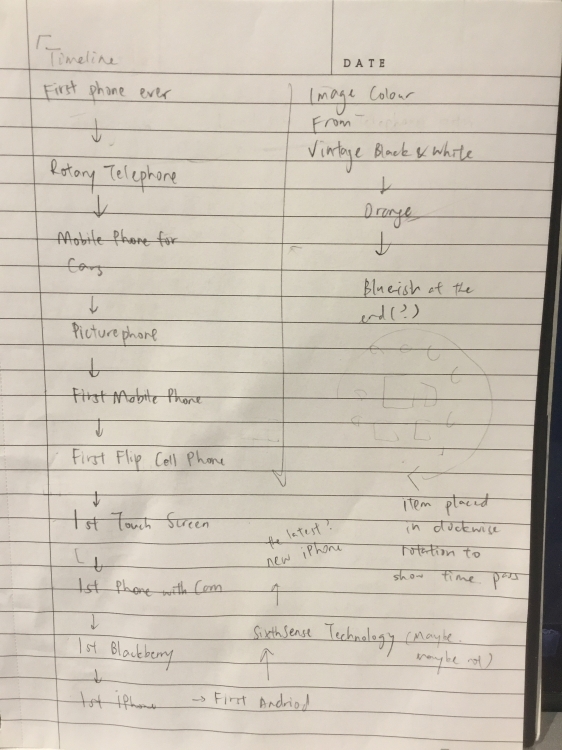 Timeline
DATE
First phone ever
Rotary Telephone
Mobile Phone for
Cars
Picturephone
First Mobile Phone
First Flip Cell Phone
1st Touch Screen
1st Phone with Cam
1st Blackberry
1st iPhone → First Andriod
SixthSense Technology (Maybe
maybe not)
the latest?
new iPhone
Image Colour
From
Vintage Black & White
Orange
Blueish at the
end(?)
item placed
in clockwise
rotation to
show time pass